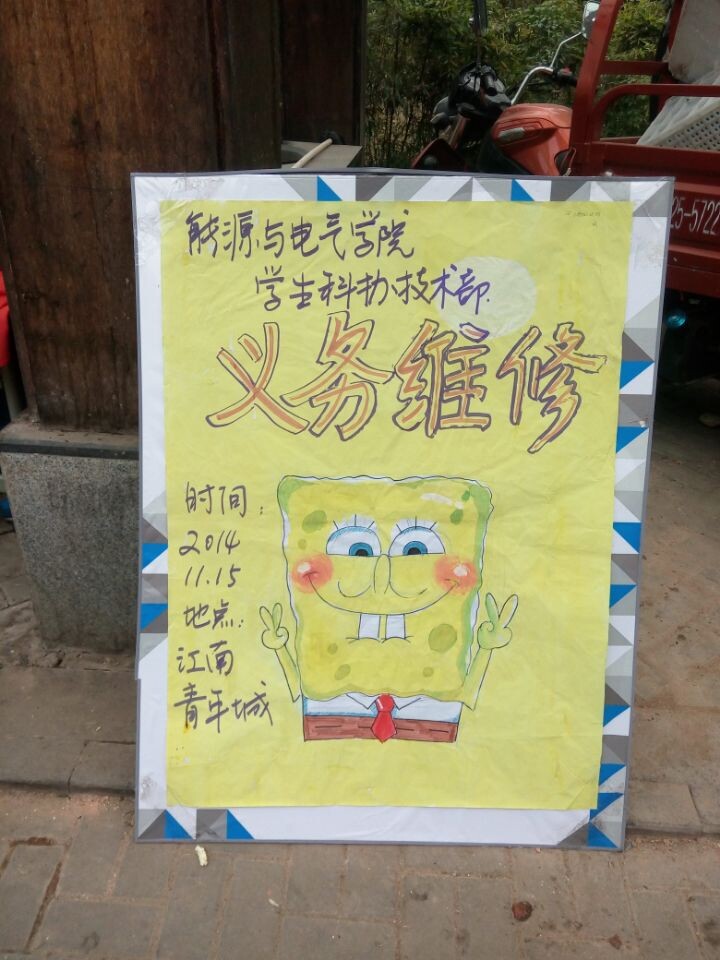 能源与电气学院
学生科协技术部
义务维修
时间:
2014
11.15
地点:
江南
青年城
25-5722